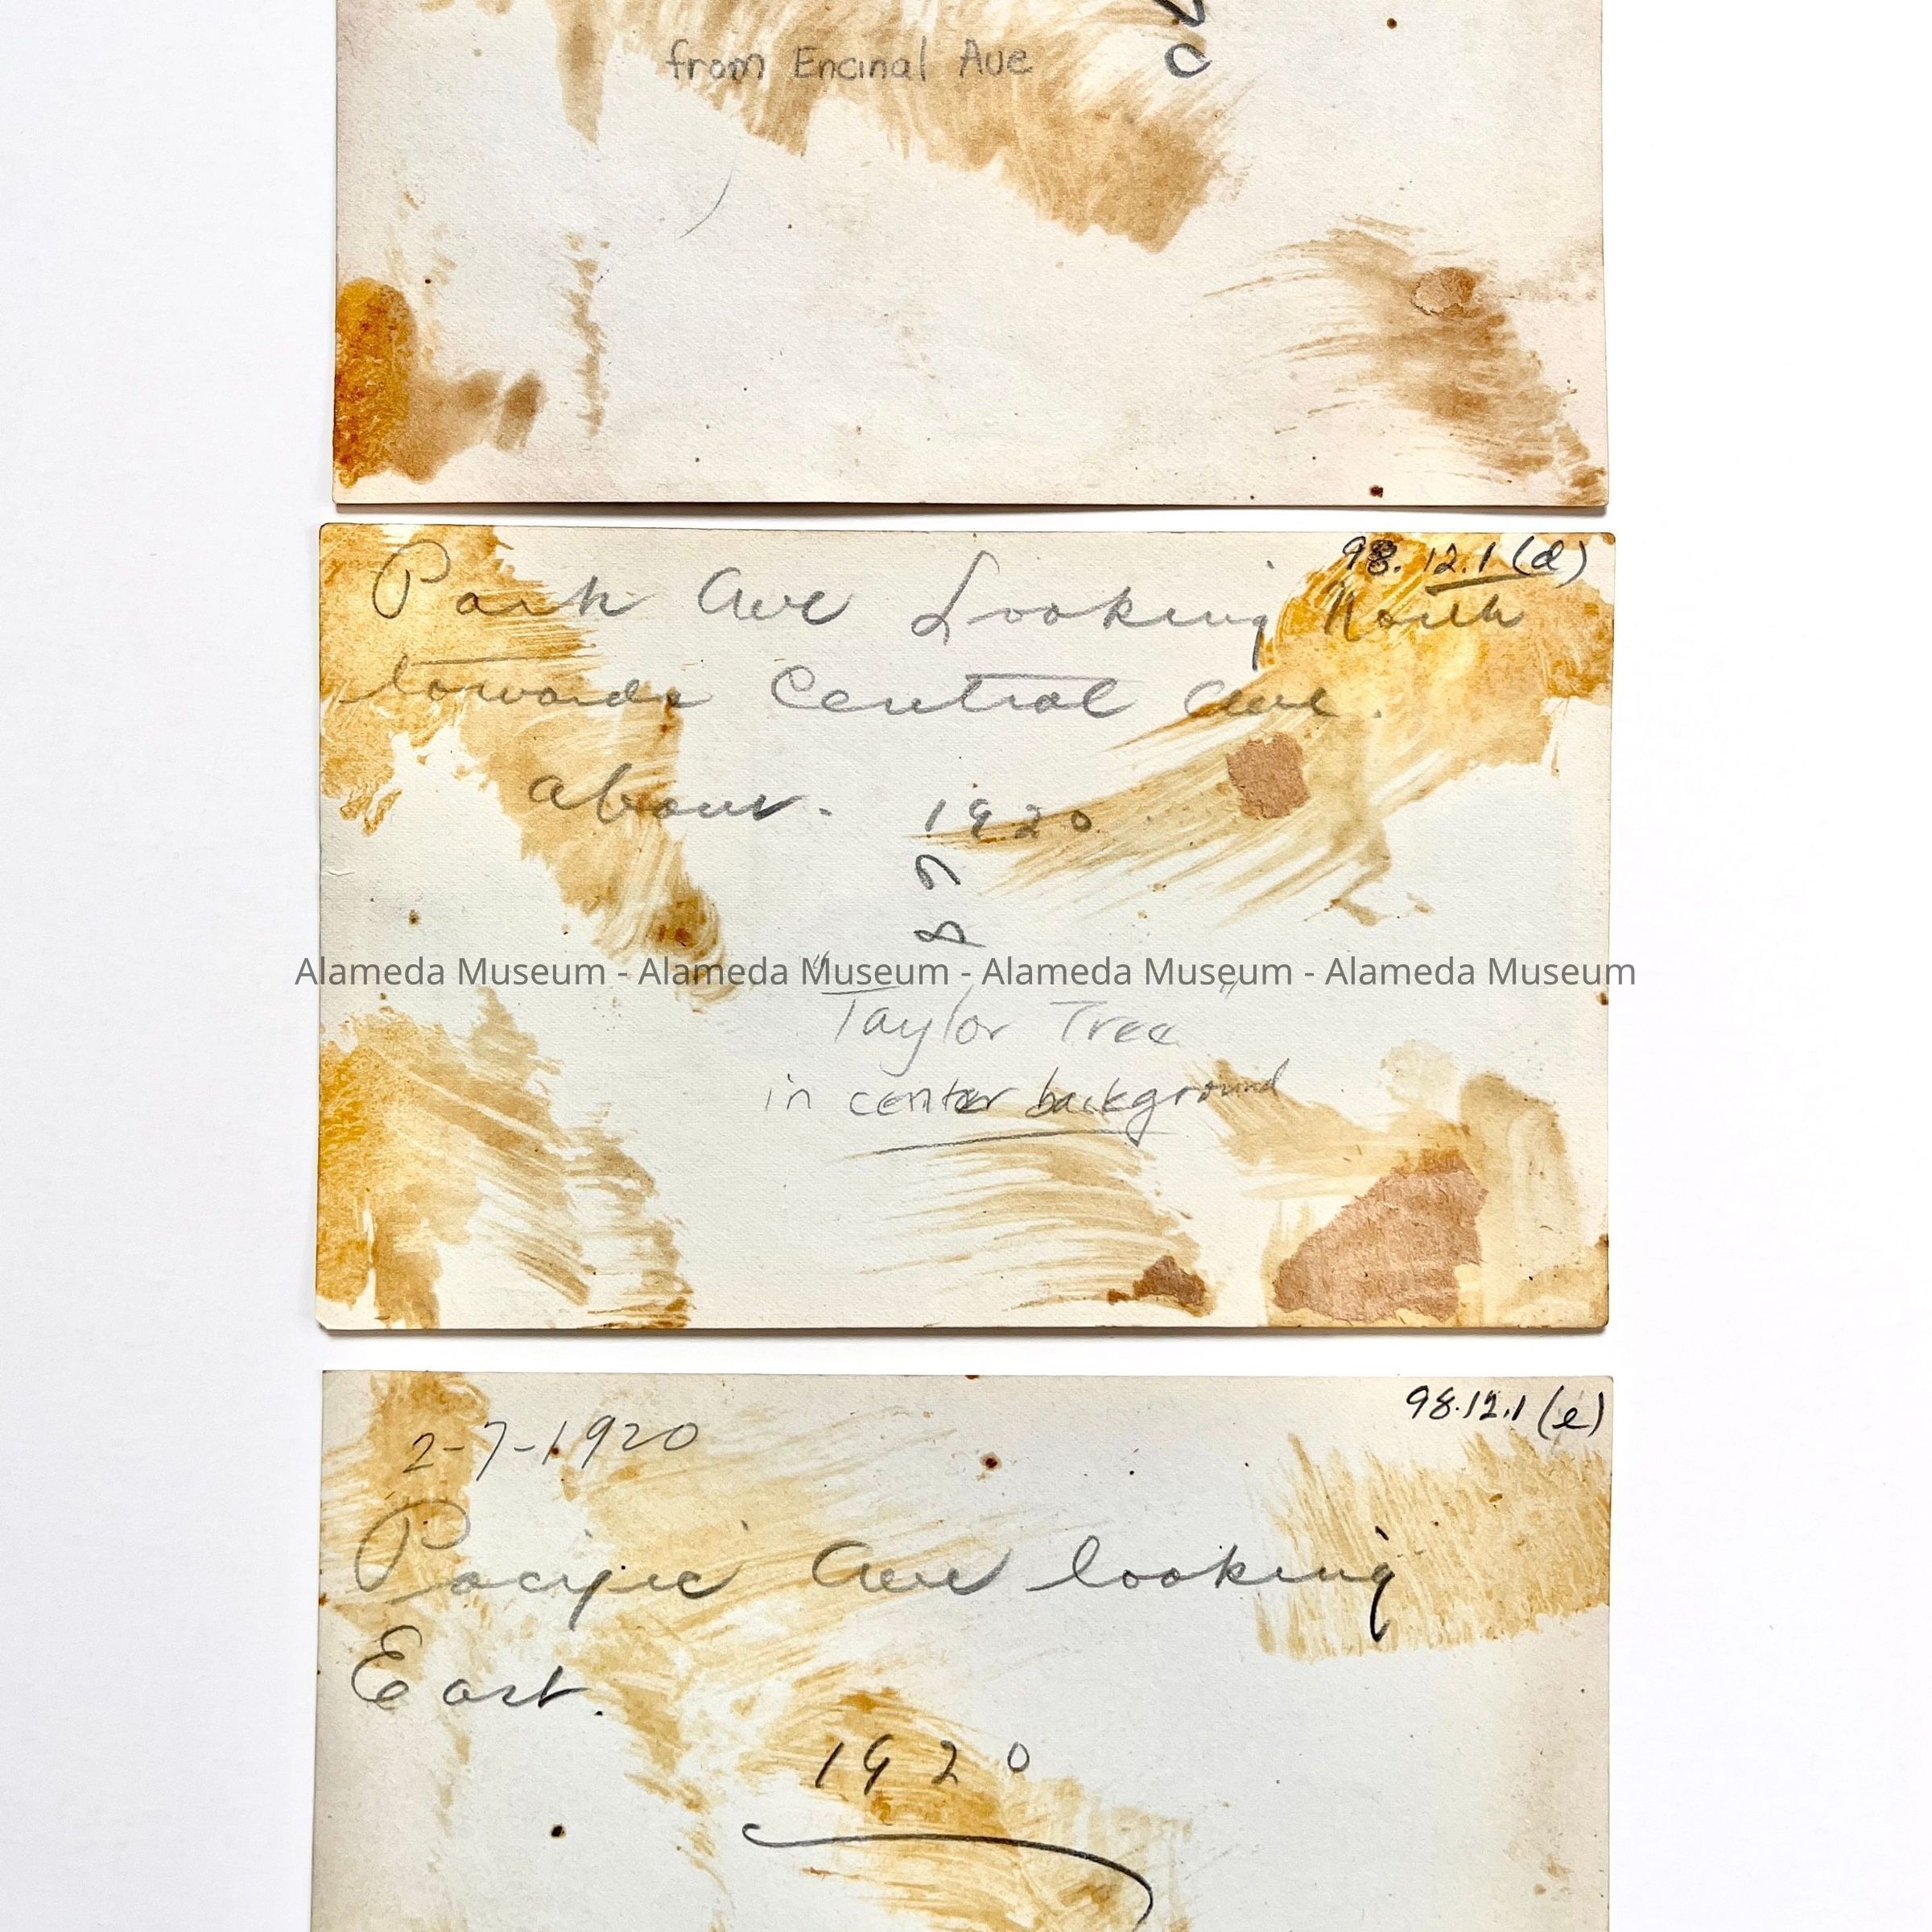 from Encinal Ave
98.12.1 (d)
Park Ave Looking North
towards Central Ave.
about. 1920
Alameda Museum - Alameda Museum - Alameda Museum - Alameda Museum
"Taylor Tree"
in center background
98.12.1 (e)
2-7-1920
Pacific Ave looking
East.
1920